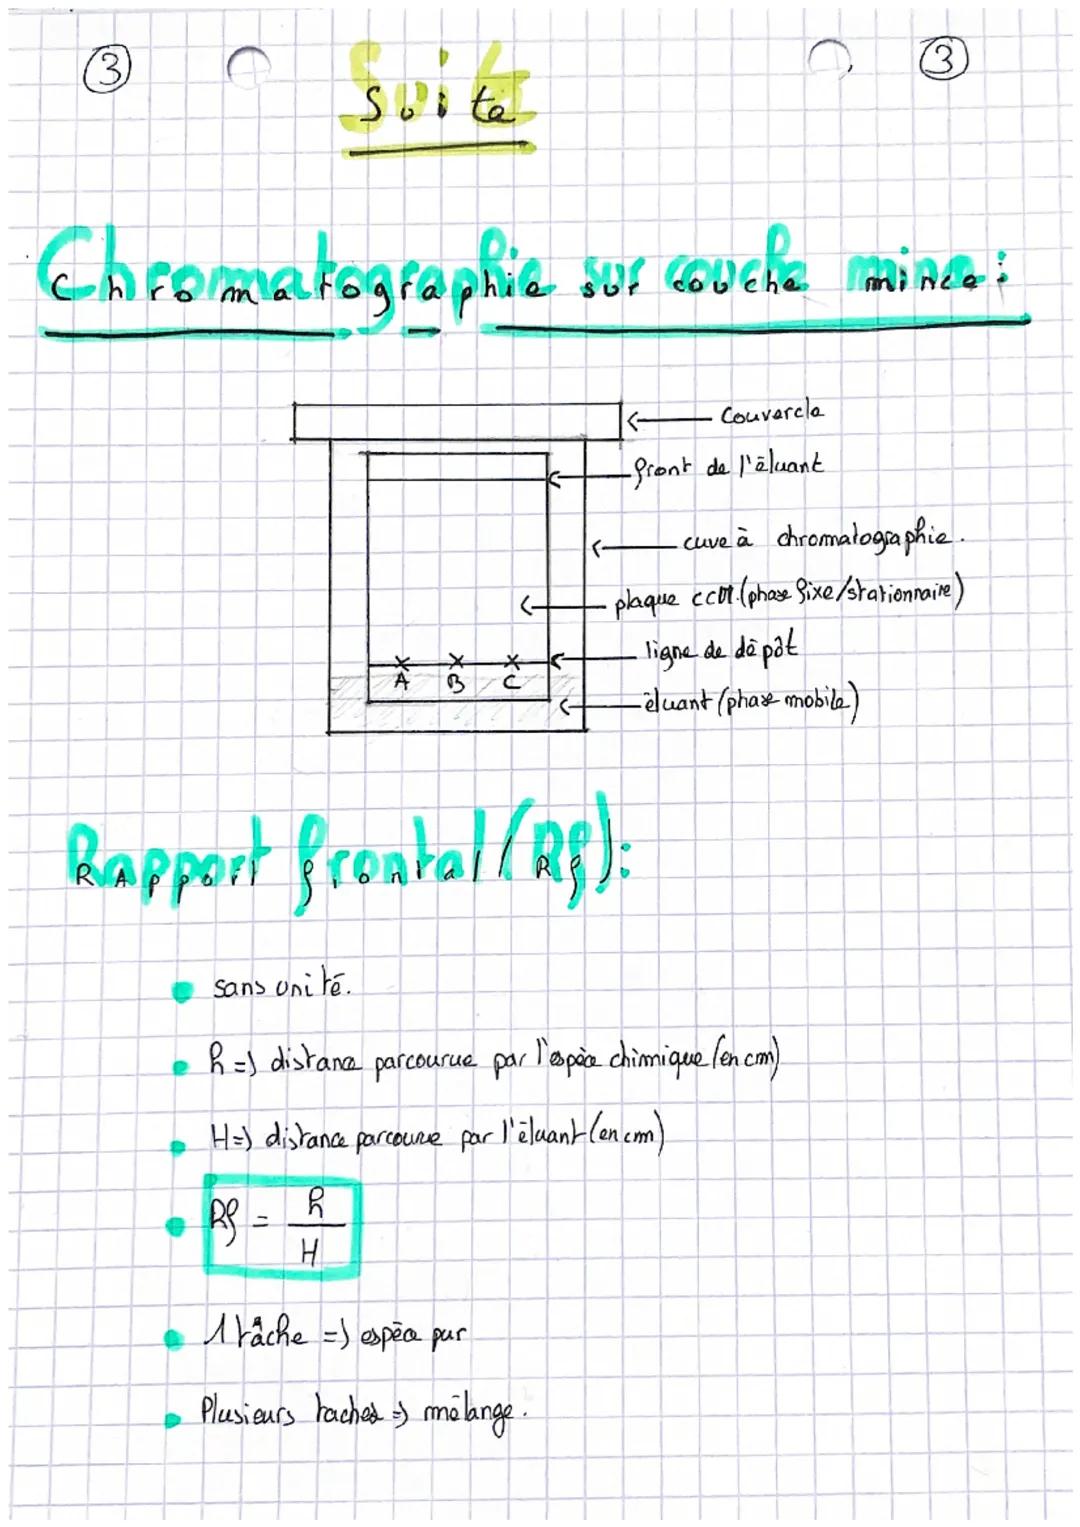 3
3
Suite
Chromatographie sur couche mince :
Couvercle
front de l'éluant
cuve à chromatographie.
plaque CCM (phase fixe/stationnaire)
ligne de dépôt
A B C
éluant (phase mobile)
Rapport frontal (Rf) :
sans unité.
h => distance parcourue par l'espèce chimique (en cm)
H => distance parcourue par l'éluant (en cm)
Rf = h
H
1 tâche => espèce pur
Plusieurs taches => mélange.